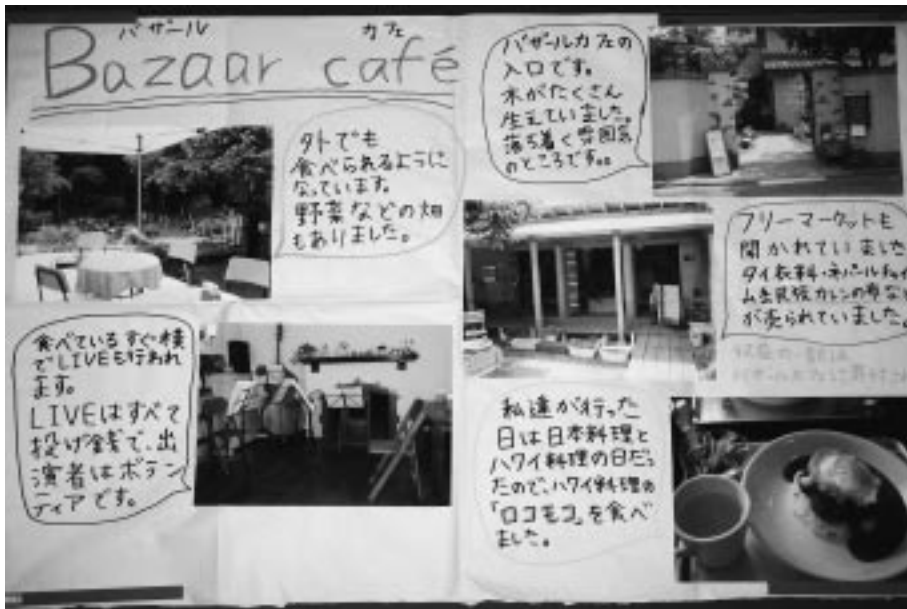 バザール カフェ
Bazaar café
外でも
食べられるように
なっています。
野菜などの畑
もありました。
食べているすぐ横
でLIVEも行われ
ます。
LIVEはすべて
投げ銭で、出
演者はボラン
ティアです。
バザールカフェの
入口です。
木がたくさん
生えていました。
落ち着く雰囲気
のところです。
フリーマーケットも
開かれていました
タイ衣料・ネパールチャイ
山岳民族カレンの布など
が売られていました。
私達が行った
日は日本料理と
ハワイ料理の日だっ
たので、ハワイ料理の
「ロコモコ」を食べ
ました。